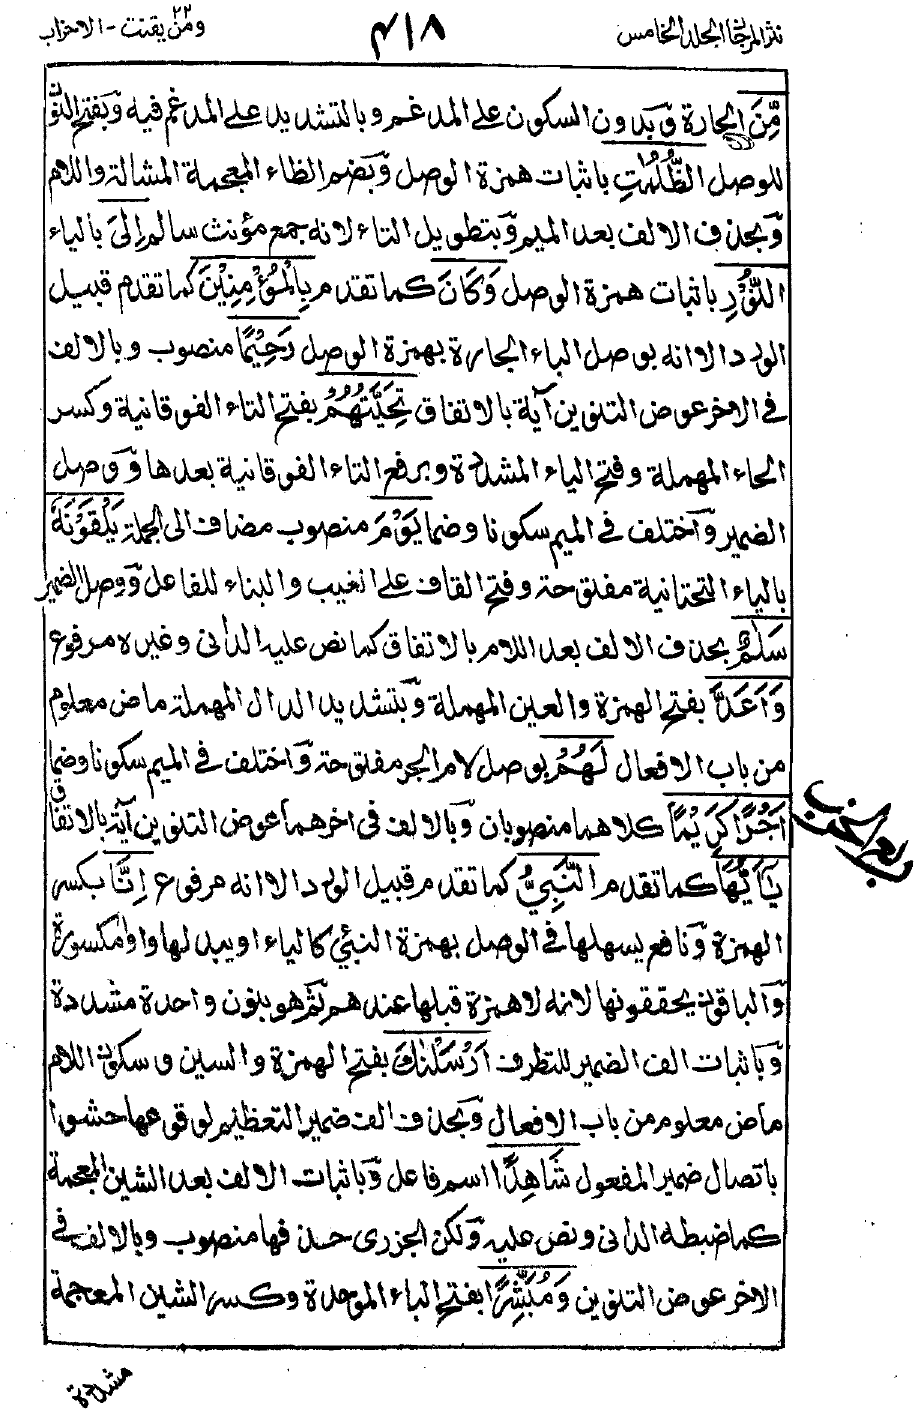 نثر المرجان الجلد الخامس ٤١٨ ومن يقنت ٢٢ - الاحزاب
مِّنَ الجارة وَبدون السكون على المدغم وبالتشديد على المدغم فيه وَبفتح النون
للوصل الظُّلُمٰتِ باثبات همزة الوصل وَبضم الظاء المعجمة المشالة واللام
وَبحذف الالف بعد الميم وَبتطويل التاء لانه جمع مؤنث سالم اِلَى بالياء
النُّوْرِ باثبات همزة الوصل وَكَانَ كما تقدم بِالْمُؤْمِنِيْنَ كما تقدم قبيل
الورد الا انه بوصل الباء الجارة بهمزة الوصل رَحِيْمًا منصوب وبالالف
فى الاخر عوض التنوين آية بالاتفاق تَحِيَّتُهُمْ بفتح التاء الفوقانية وكسر
الحاء المهملة وفتح الياء المشددة وبرفع التاء الفوقانية بعدها وَوصل
الضمير وَاختلف فى الميم سكونا وضما يَوْمَ منصوب مضاف الى الجملة يَلْقَوْنَهٗ
بالياء التحتانية مفتوحة وفتح القاف على الغيب والبناء للفاعل وَوصل الضمير
سَلٰمٌ بحذف الالف بعد اللام بالاتفاق كما نص عليه الدانى وغيره مرفوع
وَاَعَدَّ بفتح الهمزة والعين المهملة وَبتشديد الدال المهملة ماض معلوم
من باب الافعال لَهُمْ بوصل لام الجر مفتوحة وَاختلف فى الميم سكونا وضما
اَجْرًا كَرِيْمًا كلاهما منصوبان وَبالالف فى اخرهما عوض التنوين آية بالاتفاق
يٰٓاَيُّهَا كما تقدم النَّبِيُّ كما تقدم قبيل الورد الا انه مرفوع اِنَّا بكسر
الهمزة وَنافع يسهلها فى الوصل بهمزة النبئ كالياء او يبدلها واوا مكسورة
وَالباقون يحققونها لانه لا همزة قبلها عندهم ثم هو بنون واحدة مشددة
وَباثبات الف الضمير للتطرف اَرْسَلْنٰكَ بفتح الهمزة والسين وسكون اللام
ماض معلوم من باب الافعال وَبحذف الف ضمير التعظيم لوقوعها حشوا
باتصال ضمير المفعول شَاهِدًا اسم فاعل وَباثبات الالف بعد الشين المعجمة
كما ضبطه الدانى ونص عليه وَلكن الجزرى حذفها منصوب وبالالف فى
الاخر عوض التنوين وَمُبَشِّرًا بفتح الباء الموحدة وكسر الشين المعجمة
مشددة